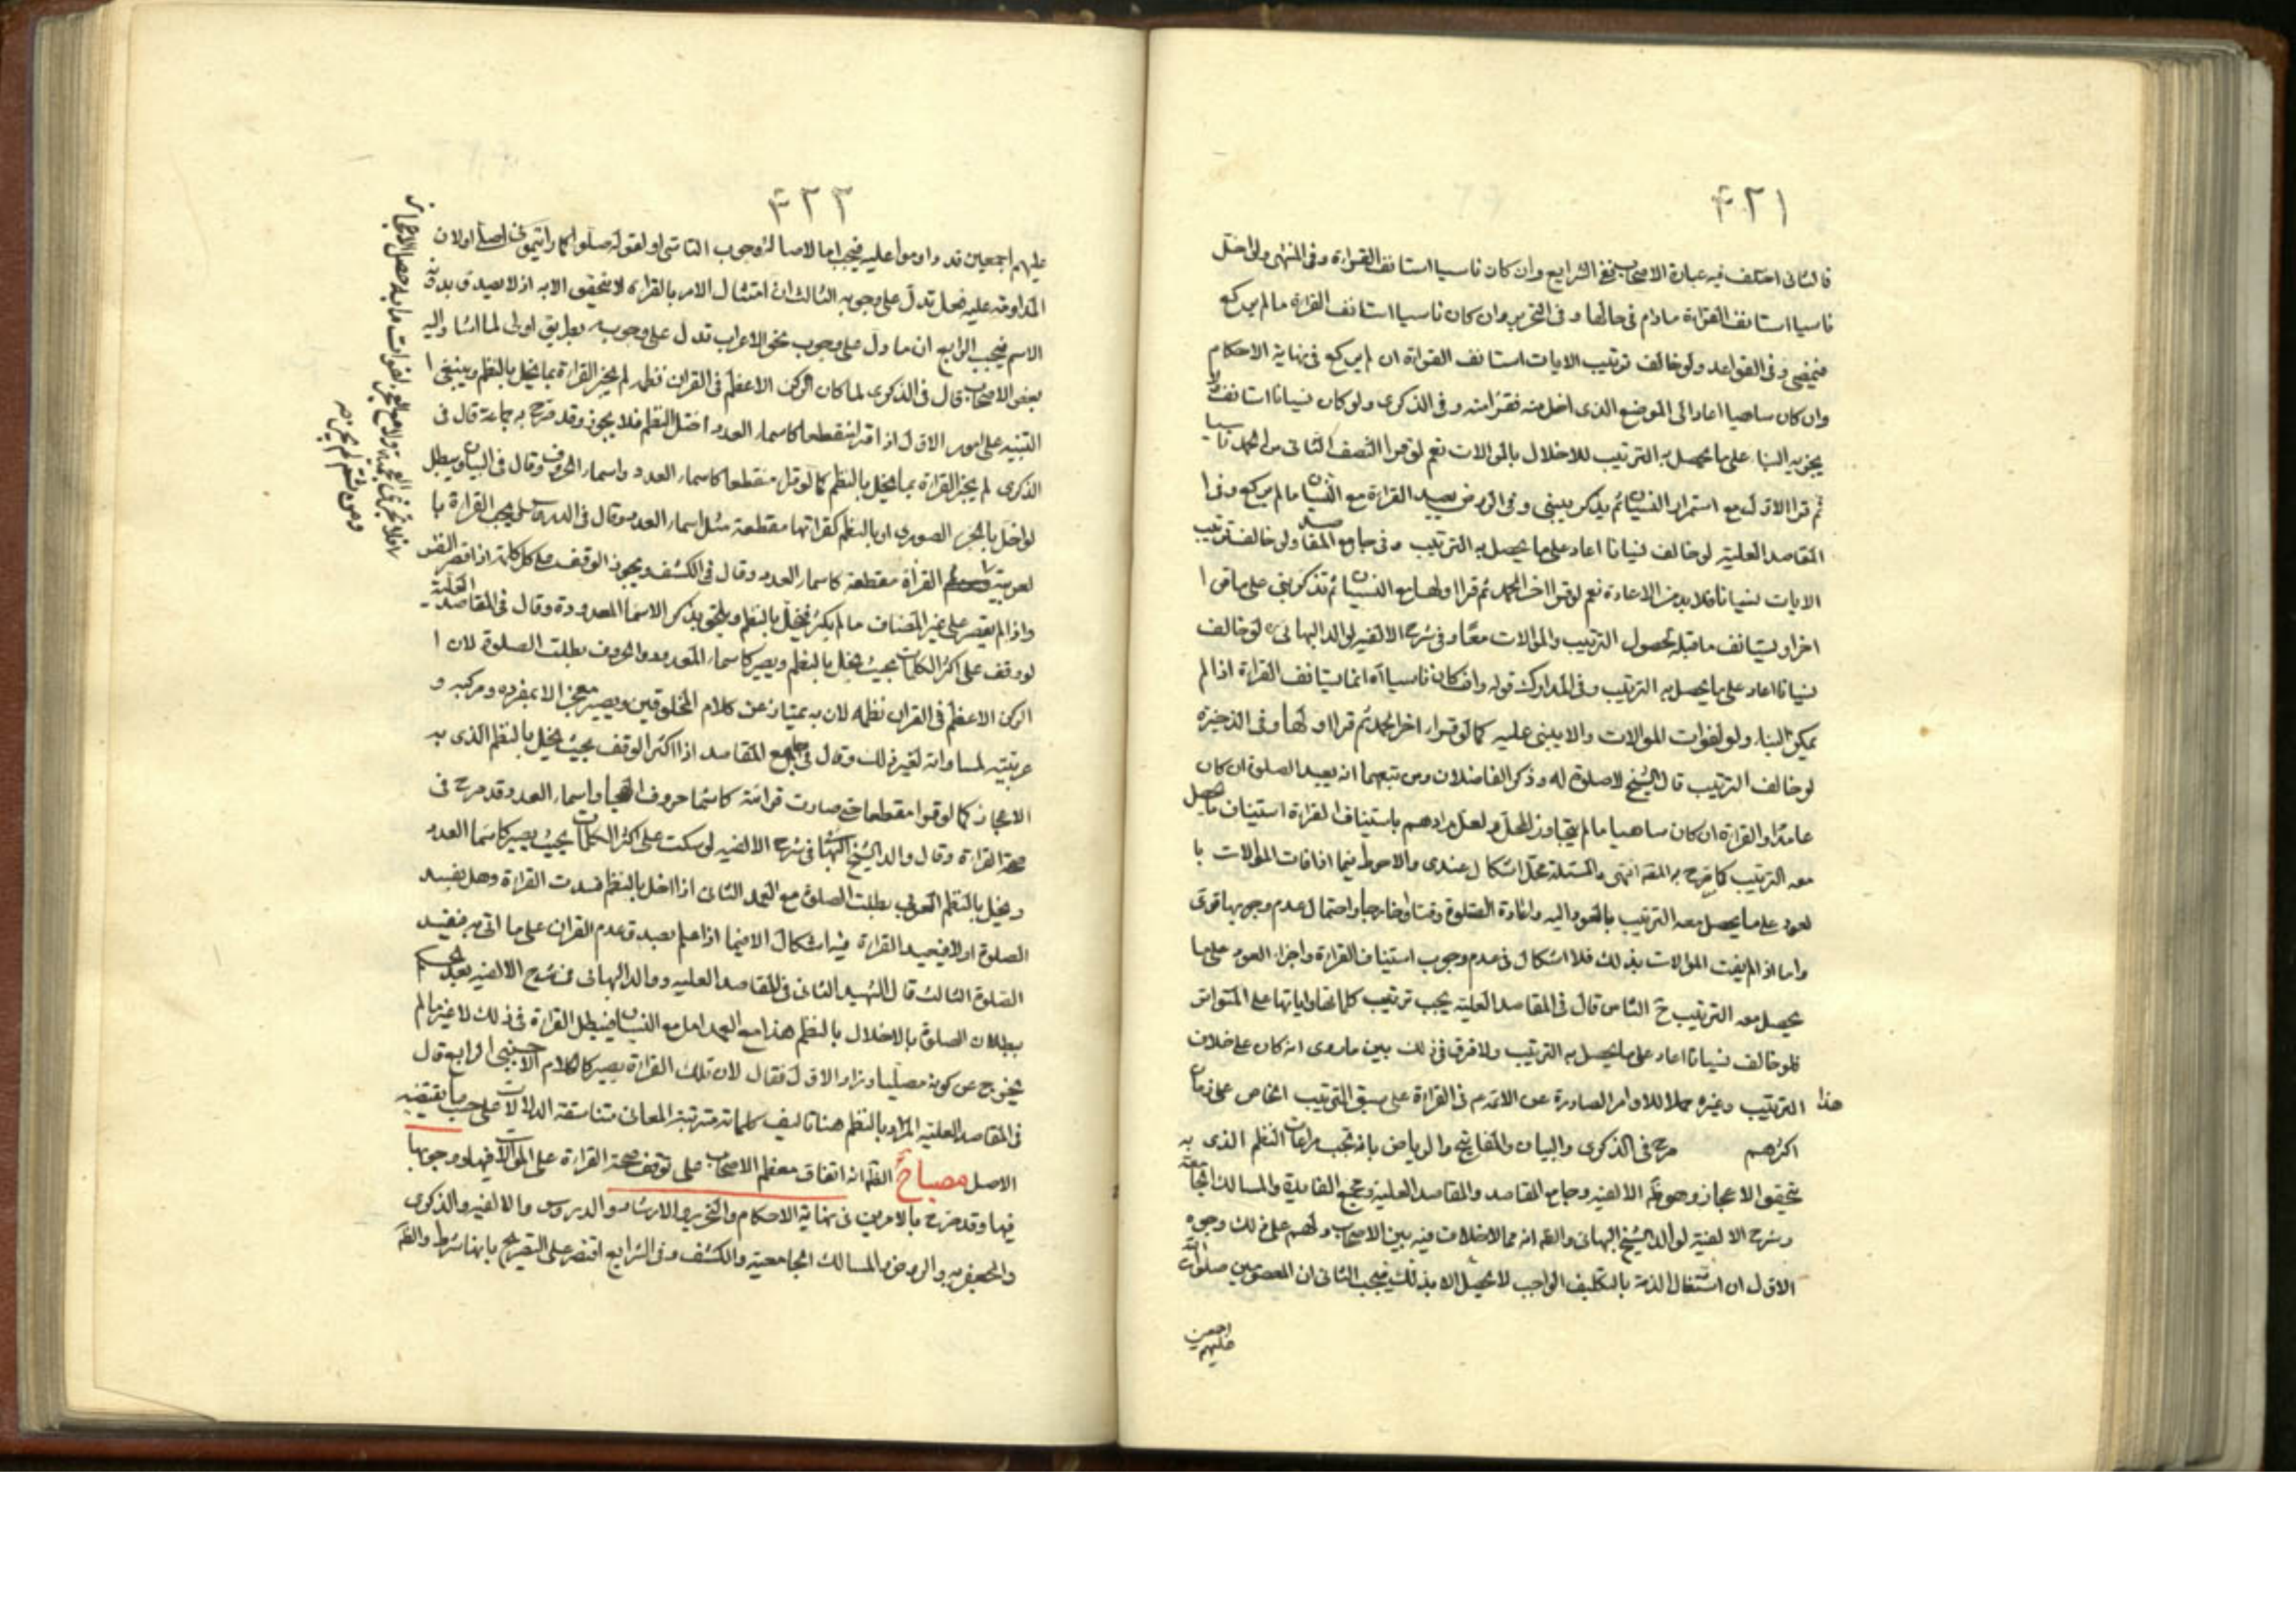 ٣٢١
فالثانى اختلف فيه عبارة الاصحاب ففى الشرايع وان كان ناسيا استانف القراءة وفى المنتهى ولو اخل
ناسيا استانف القراءة مادام فى حالها وفى التحرير وان كان ناسيا استانف القراءة ما لم يركع
فيمضى وفى القواعد ولو خالف ترتيب الايات استانف القراءة ان لم يركع فى نهاية الاحكام
وان كان ساهيا اعاد الى الموضع الذى اخل منه فقرا منه وفى الذكرى ولو كان نسيانا استانف ولا
يجزيه البنا على ما يحصل به الترتيب للاخلال بالموالات نعم لو قرا النصف الثانى من الحمد ناسيا
ثم قرا الاول مع استمرار النسيان ثم يذكر يبنى وفى الروض يعيد القراءة مع النسيان ما لم يركع وفى ا
المقاصد العلية لو خالف نسيانا اعاد على ما يحصل به الترتيب وفى جامع المقاصد ولو خالف ترتيب
الايات نسيانا فلا بد من الاعادة نعم لو قرا اخر الحمد ثم قرا اولها مع النسيان ثم تذكر بنى على ما قرا ا
اخرا ويستانف ما قبله لحصول الترتيب والموالات معا وفى شرح الالفيه لوالد البهائى لو خالف
نسيانا اعاد على ما يحصل به الترتيب وفى المدارك قوله وان كان ناسيا اه انما يستانف القراءة اذا لم
يمكن البناء ولو لفوات الموالات والا يبنى عليه كما لو قرا اخر الحمد ثم قرا اولها وفى الذخيرة
لو خالف الترتيب قال الشيخ لا صلوة له وذكر الفاضلان ومن تبعهما انه يعيد الصلوة ان كان
عامدا والقراءة ان كان ساهيا ما لم يتجاوز المحل ولعل مرادهم باستيناف القراءة استيناف ما يحصل
معه الترتيب كما صرح به المقه انتهى والمسئلة محل اشكال عندى والاحوط فيما اذا فات الموالات با
لعود على ما يحصل معه الترتيب بالعود اليه واعادة الصلوة وقتا وخارجا واحتمال عدم وجوبها قوى
واما اذا لم يفت الموالات بذلك فلا اشكال فى عدم وجوب استيناف القراءة واجزاء العود على ما
يحصل معه الترتيب ح الثامن قال فى المقاصد العلية يجب ترتيب كلماتها واياتها على المتواتر
فلو خالف نسيانا اعاد على ما يحصل به الترتيب ولا فرق فى ذلك بين ما روى انه كان على خلاف
هذا الترتيب وغيره حملا للاوامر الصادرة عن الائمه م فى القراءة على سبق الترتيب الخاص على زمان
اكثرهم صرح فى الذكرى والبيان والمفاتيح والرياض بانه تجب مراعات النظم الذى به
يتحقق الاعجاز وهو ظه الالفيه وجامع المقاصد والمقاصد العلية ومجمع الفايدة والمسالك الجامعية
وشرح الالفية لوالد الشيخ البهائى والظه انه مما لا خلاف فيه بين الاصحاب ولهم على ذلك وجوه
الاول ان اشتغال الذمة بالتكليف الواجب لا يحصل الا بذلك فيجب الثانى ان المعصومين صلوات الله
عليهم اجمعين
٣٢٢
عليهم اجمعين قد داوموا عليه فيجب اما لاصالة وجوب التاسى او لقوله صلوا كما رايتمونى اصلى او لان
المداومة عليه فعل تدل على وجوبه الثالث ان امتثال الامر بالقراءة لا يتحقق الا به اذ لا يصدق بدونه
الاسم فيجب الرابع ان ما دل على وجوب نحو الاعراب تدل على وجوبه بطريق اولى لما اشار اليه
بعض الاصحاب قال فى الذكرى لما كان الركن الاعظم فى القران نظمه لم يجز القراءة بما يخل بالنظم وينبغى ا
التنبيه على امور الاول اذا قرا منقطعا كاسماء العدد اختل النظم فلا يجوز وقد صرح به جماعة قال فى
الذكرى لم يجز القراءة بما يخل بالنظم كما لو قرا منقطعا كاسماء العدد واسماء الحروف وقال فى البيان ويبطل
لو اخل بالجزء الصورى او بالنظم كقرائتها مقطعة مثل اسماء العدد وقال فى الدروس يجب القراءة با
لعربية القراة مقطعة كاسماء العدد وقال فى الكشف ويجوز الوقف على كل كلمة اذا قصر النفس
واذا لم يقصر على غير المضاف ما لم يكثر فيخل بالنظم ويلحق بذكر الاسما المعدودة وقال فى المقاصد العلية
لو وقف على اكثر الكلمات بحيث يخل بالنظم ويصير كاسماء المعدود والحروف بطلت الصلوة لان ا
الركن الاعظم فى القران نظمه لان به يمتاز عن كلام المخلوقين ويصير معجزا لا بمفرده ومركبه و
عربيته لمساواته لغيره ذلك وقال فى جامع المقاصد اذا اكثر الوقف بحيث يخل بالنظم الذى به
الاعجاز كما لو قرا مقطعا حتى صارت قرائته كاسما حروف الهجا واسماء العدد وقد صرح فى
صحة القراءة وقال والد الشيخ البهائى فى شرح الالفيه لو سكت على اكثر الكلمات بحيث يصير كاسما العدد
ويخل بالنظم العربى بطلت الصلوة مع العمد الثانى اذا اخل بالنظم فسدت القراءة وهل يفسد
الصلوة او لا فيعيد القراءة فيه اشكال الا فيما اذا علم بصدق عدم القران على ما اتى به فيفسد
الصلوة الثالث قال الشهيد الثانى فى المقاصد العليه ووالد البهائى فى شرح الالفيه بعد الحكم
ببطلان الصلوة بالاخلال بالنظم هذا مع العمد اما مع النسيان فيبطل القراءة فى ذلك لا غير ما لم
يخرج عن كونه مصليا وزاد الاول فقال لان تلك القراءة يصير كالكلام الاجنبى الرابع قال
فى المقاصد العلية المراد بالنظم هنا تاليف كلماته مترتبة المعانى متناسقة الدلالات على حسب ما يقتضيه
الاصل مصباح الظه انه اتفاق معظم الاصحاب على توقف صحة القراءة على الموالات فيها ووجوبها
فيها وقد صرح بالامرين فى نهاية الاحكام والتحرير والارشاد والدروس والالفيه والذكرى
والجعفريه والروض والمسالك الجامعية والكشف وفى الشرايع اقتصر على التصريح بانها شرط والظه